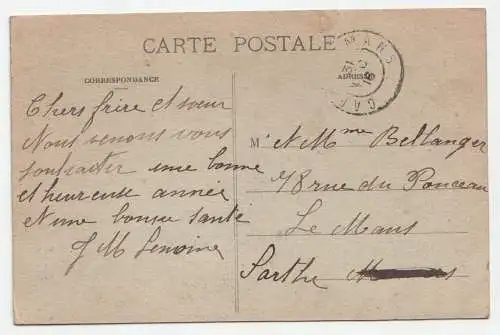 CARTE POSTALE
CORRESPONDANCE
ADRESSE
MANS
GARE
31
12
Chers frère et soeur
Nous venons vous
souhaiter une bonne
et heureuse année
et une bonne santé
J M Lenoine
M et Mme Bellanger
78 rue du Ponceau
Le Mans
Sarthe